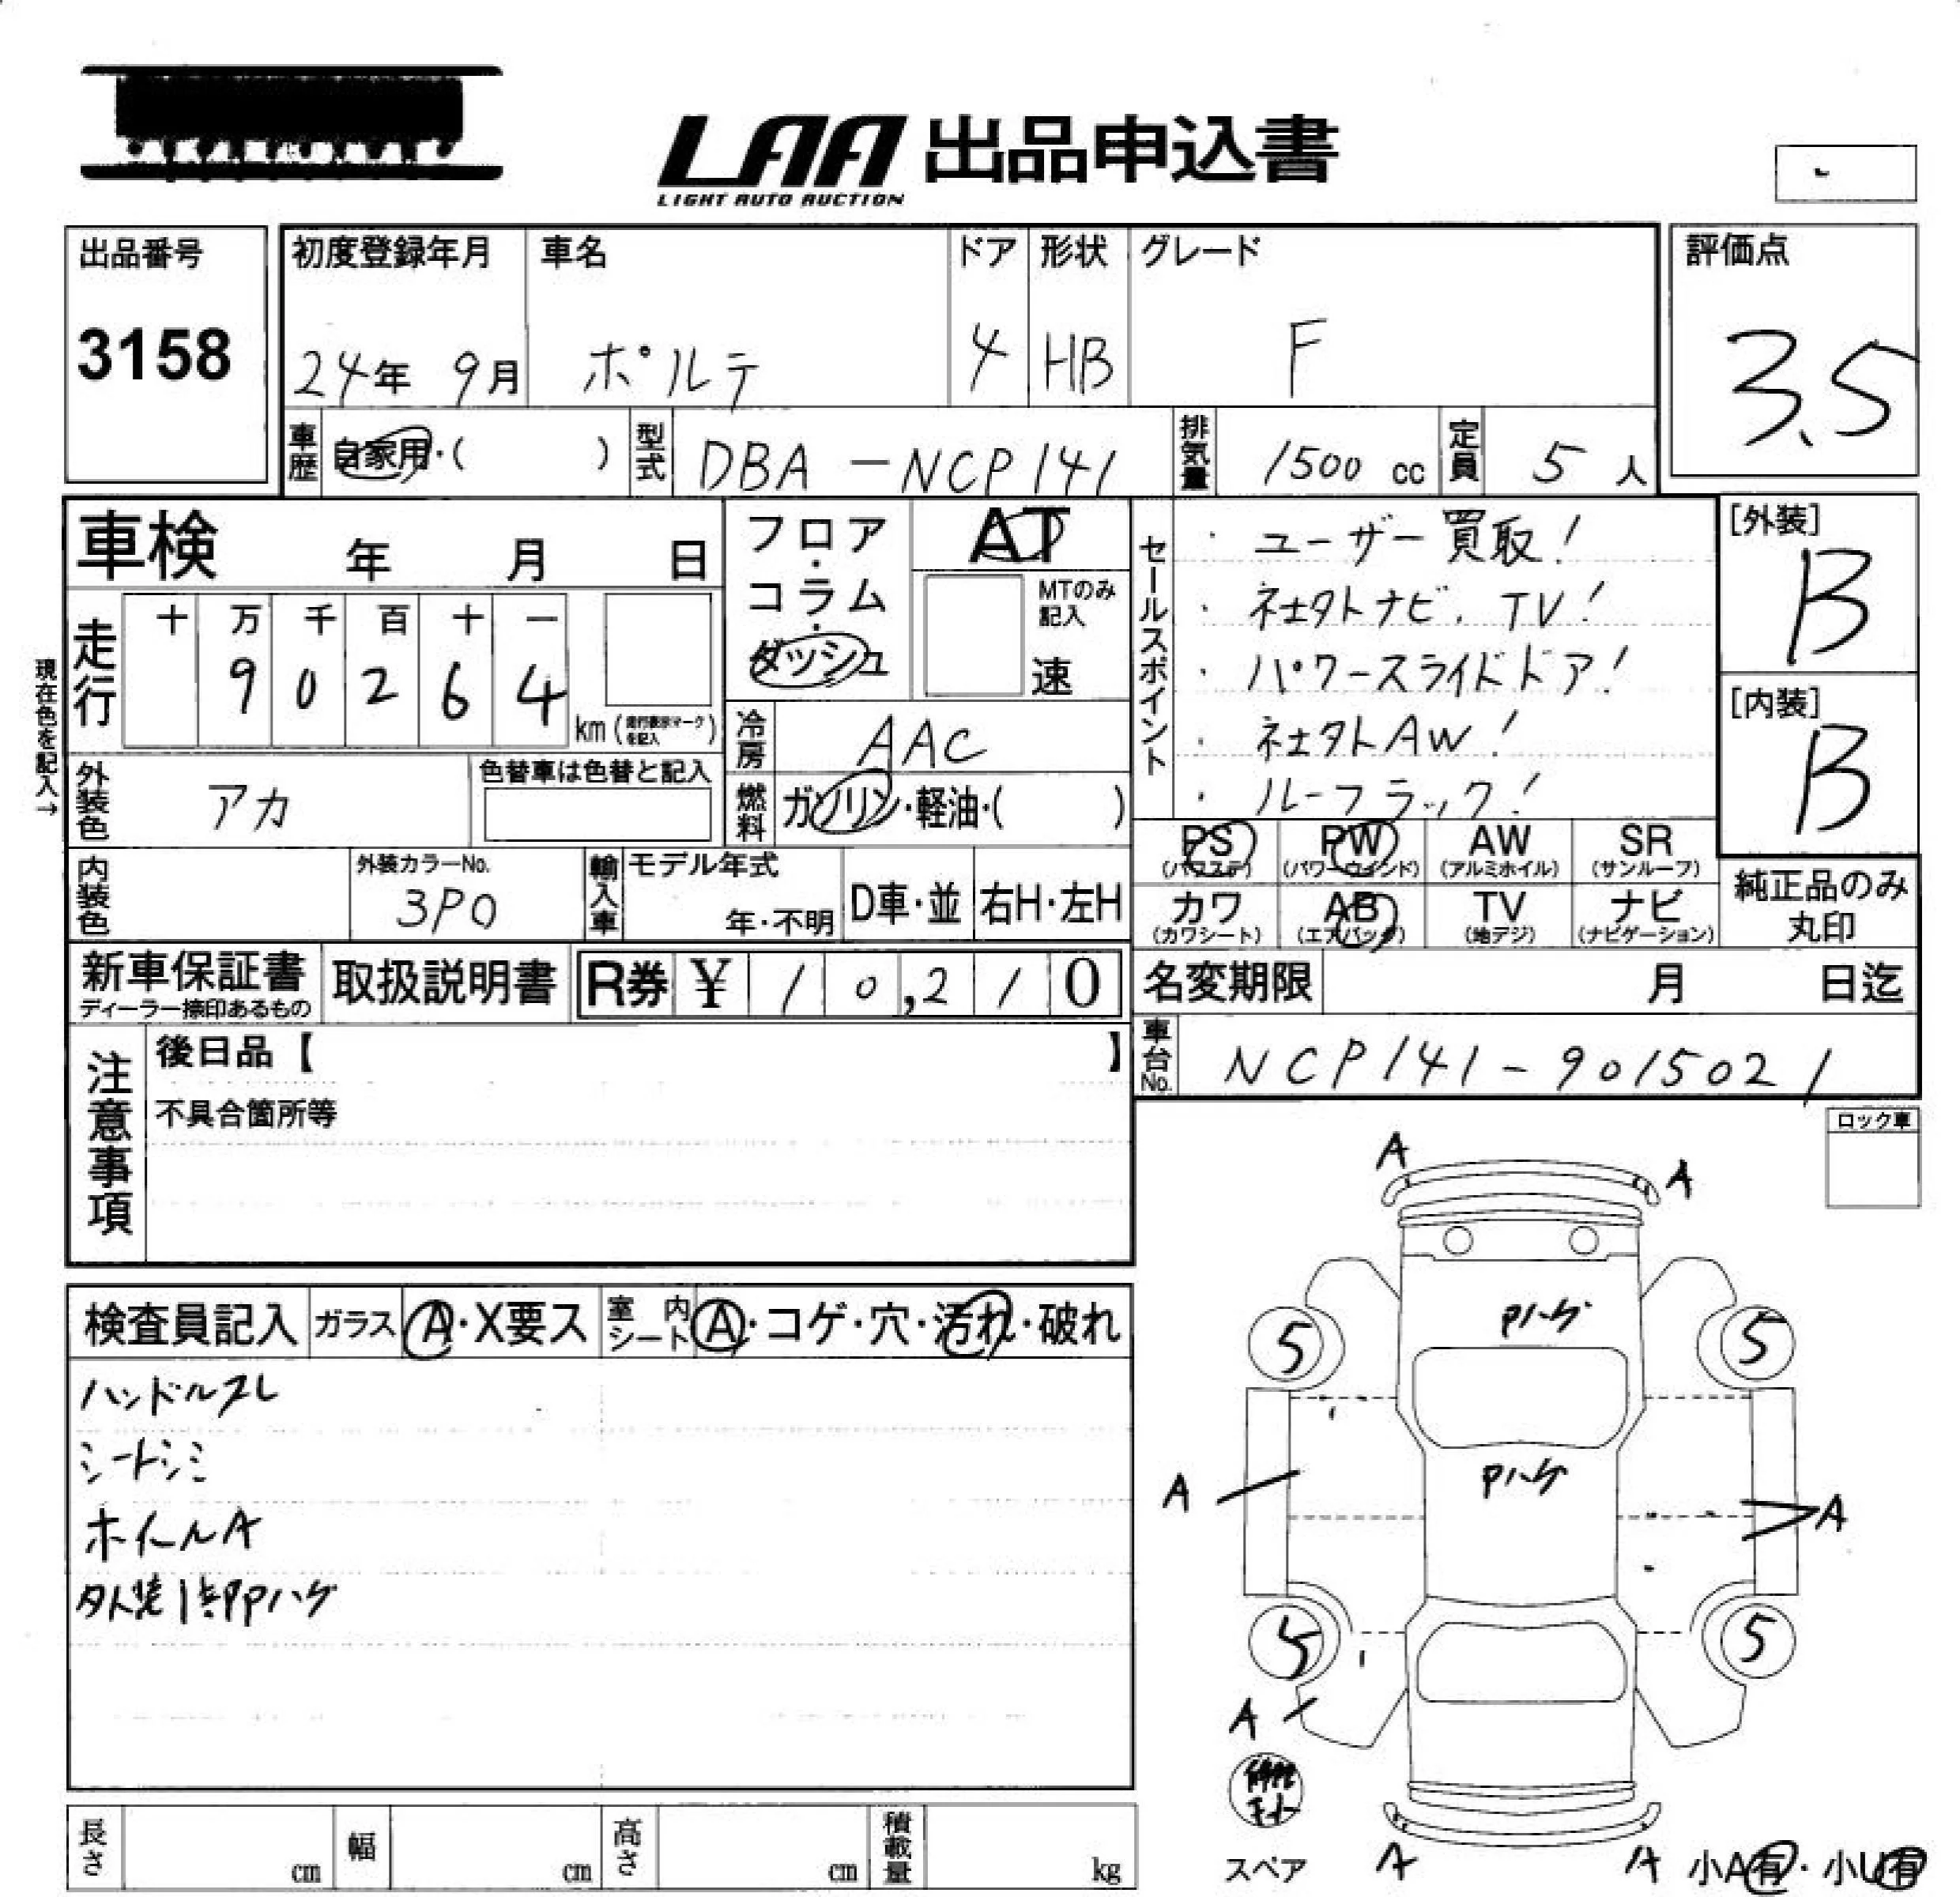 LAA 出品申込書
LIGHT AUTO AUCTION
出品番号
3158
初度登録年月 車名 ドア 形状 グレード
24年 9月 ポルテ 4 HB F
評価点
3.5
車歴 自家用・( ) 型式 DBA-NCP141 排気量 1500 cc 定員 5 人
車検 年 月 日
フロア・コラム・ダッシュ
AT
MTのみ記入
速
走行 十 万 千 百 十 一
9 0 2 6 4 km(走行表示マークを記入)
現在色を記入→
冷房 AAC
外装色 アカ
色替車は色替と記入
燃料 ガソリン・軽油・( )
内装色
外装カラーNo.
3P0
輸入車 モデル年式
年・不明 D車・並 右H・左H
セールスポイント
・ユーザー買取!
・社外ナビ、TV!
・パワースライドドア!
・社外AW!
・ルーフラック!
[外装]
B
[内装]
B
PS PW AW SR
(パワステ) (パワーウィンド) (アルミホイル) (サンルーフ)
カワ AB TV ナビ
(カワシート) (エアバック) (地デジ) (ナビゲーション)
純正品のみ
丸印
新車保証書
ディーラー捺印あるもの
取扱説明書
R券 ¥ 1 0,2 1 0
名変期限 月 日迄
車台No. NCP141-9015021
注意事項
後日品【 】
不具合箇所等
ロック車
検査員記入 ガラス A・X要ス 室内シート A・コゲ・穴・汚れ・破れ
ハンドルスレ
シートシミ
ホイールA
外装1部Pハゲ
A A
Pハゲ
5 5
Pハゲ
A A
5 5
A
修理キット
スペア
A A
小A有・小U有
長さ cm 幅 cm 高さ cm 積載量 kg